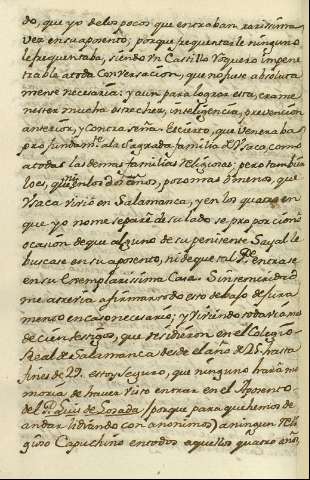 do, que yo de los pocos que entraban rarissima
vez en su aposento; porque frequentarle ninguno
le frequentaba, siendo Un Castillo Roquero impene
trable a toda Conversacion, que no fuese absoluta
mente necesaria: y aun para lograr esta, era me
nester mucha destreza, inteligencia, prevencion
anterior, y Contraseña. Es cierto, que Veneraba
profundamte. a la Sagrada familia de Ysaca, como
a todas las demas familias Religiosas; pero tambien
lo es, que en los dos años, poco mas ò menos, que
Ysaca vivió en Salamanca, y en los quatro en
que yo no me separé de su lado se proporcionò
ocasion de que alguno de su penitente Sayal le
buscase en su aposento, ni de que tal Pe. entrase
en su Exemplarissima Casa. Sin temeridad
me atrevia à afirmar todo esto debaxo de jura
mento en caso necesario; y Viviendo todavia mas
de cien testigos, que residieron en el Colegio
Real de Salamanca desde el año de 25. hasta
fines de 29. estoy seguro, que ninguno hará me
moria de haver visto entrar en el Aposento
del P. Luis de Losada (porque para que hemos de
andar lidiando con anonimos) a ningun Reli
gioso Capuchino en todos aquellos quatro años,